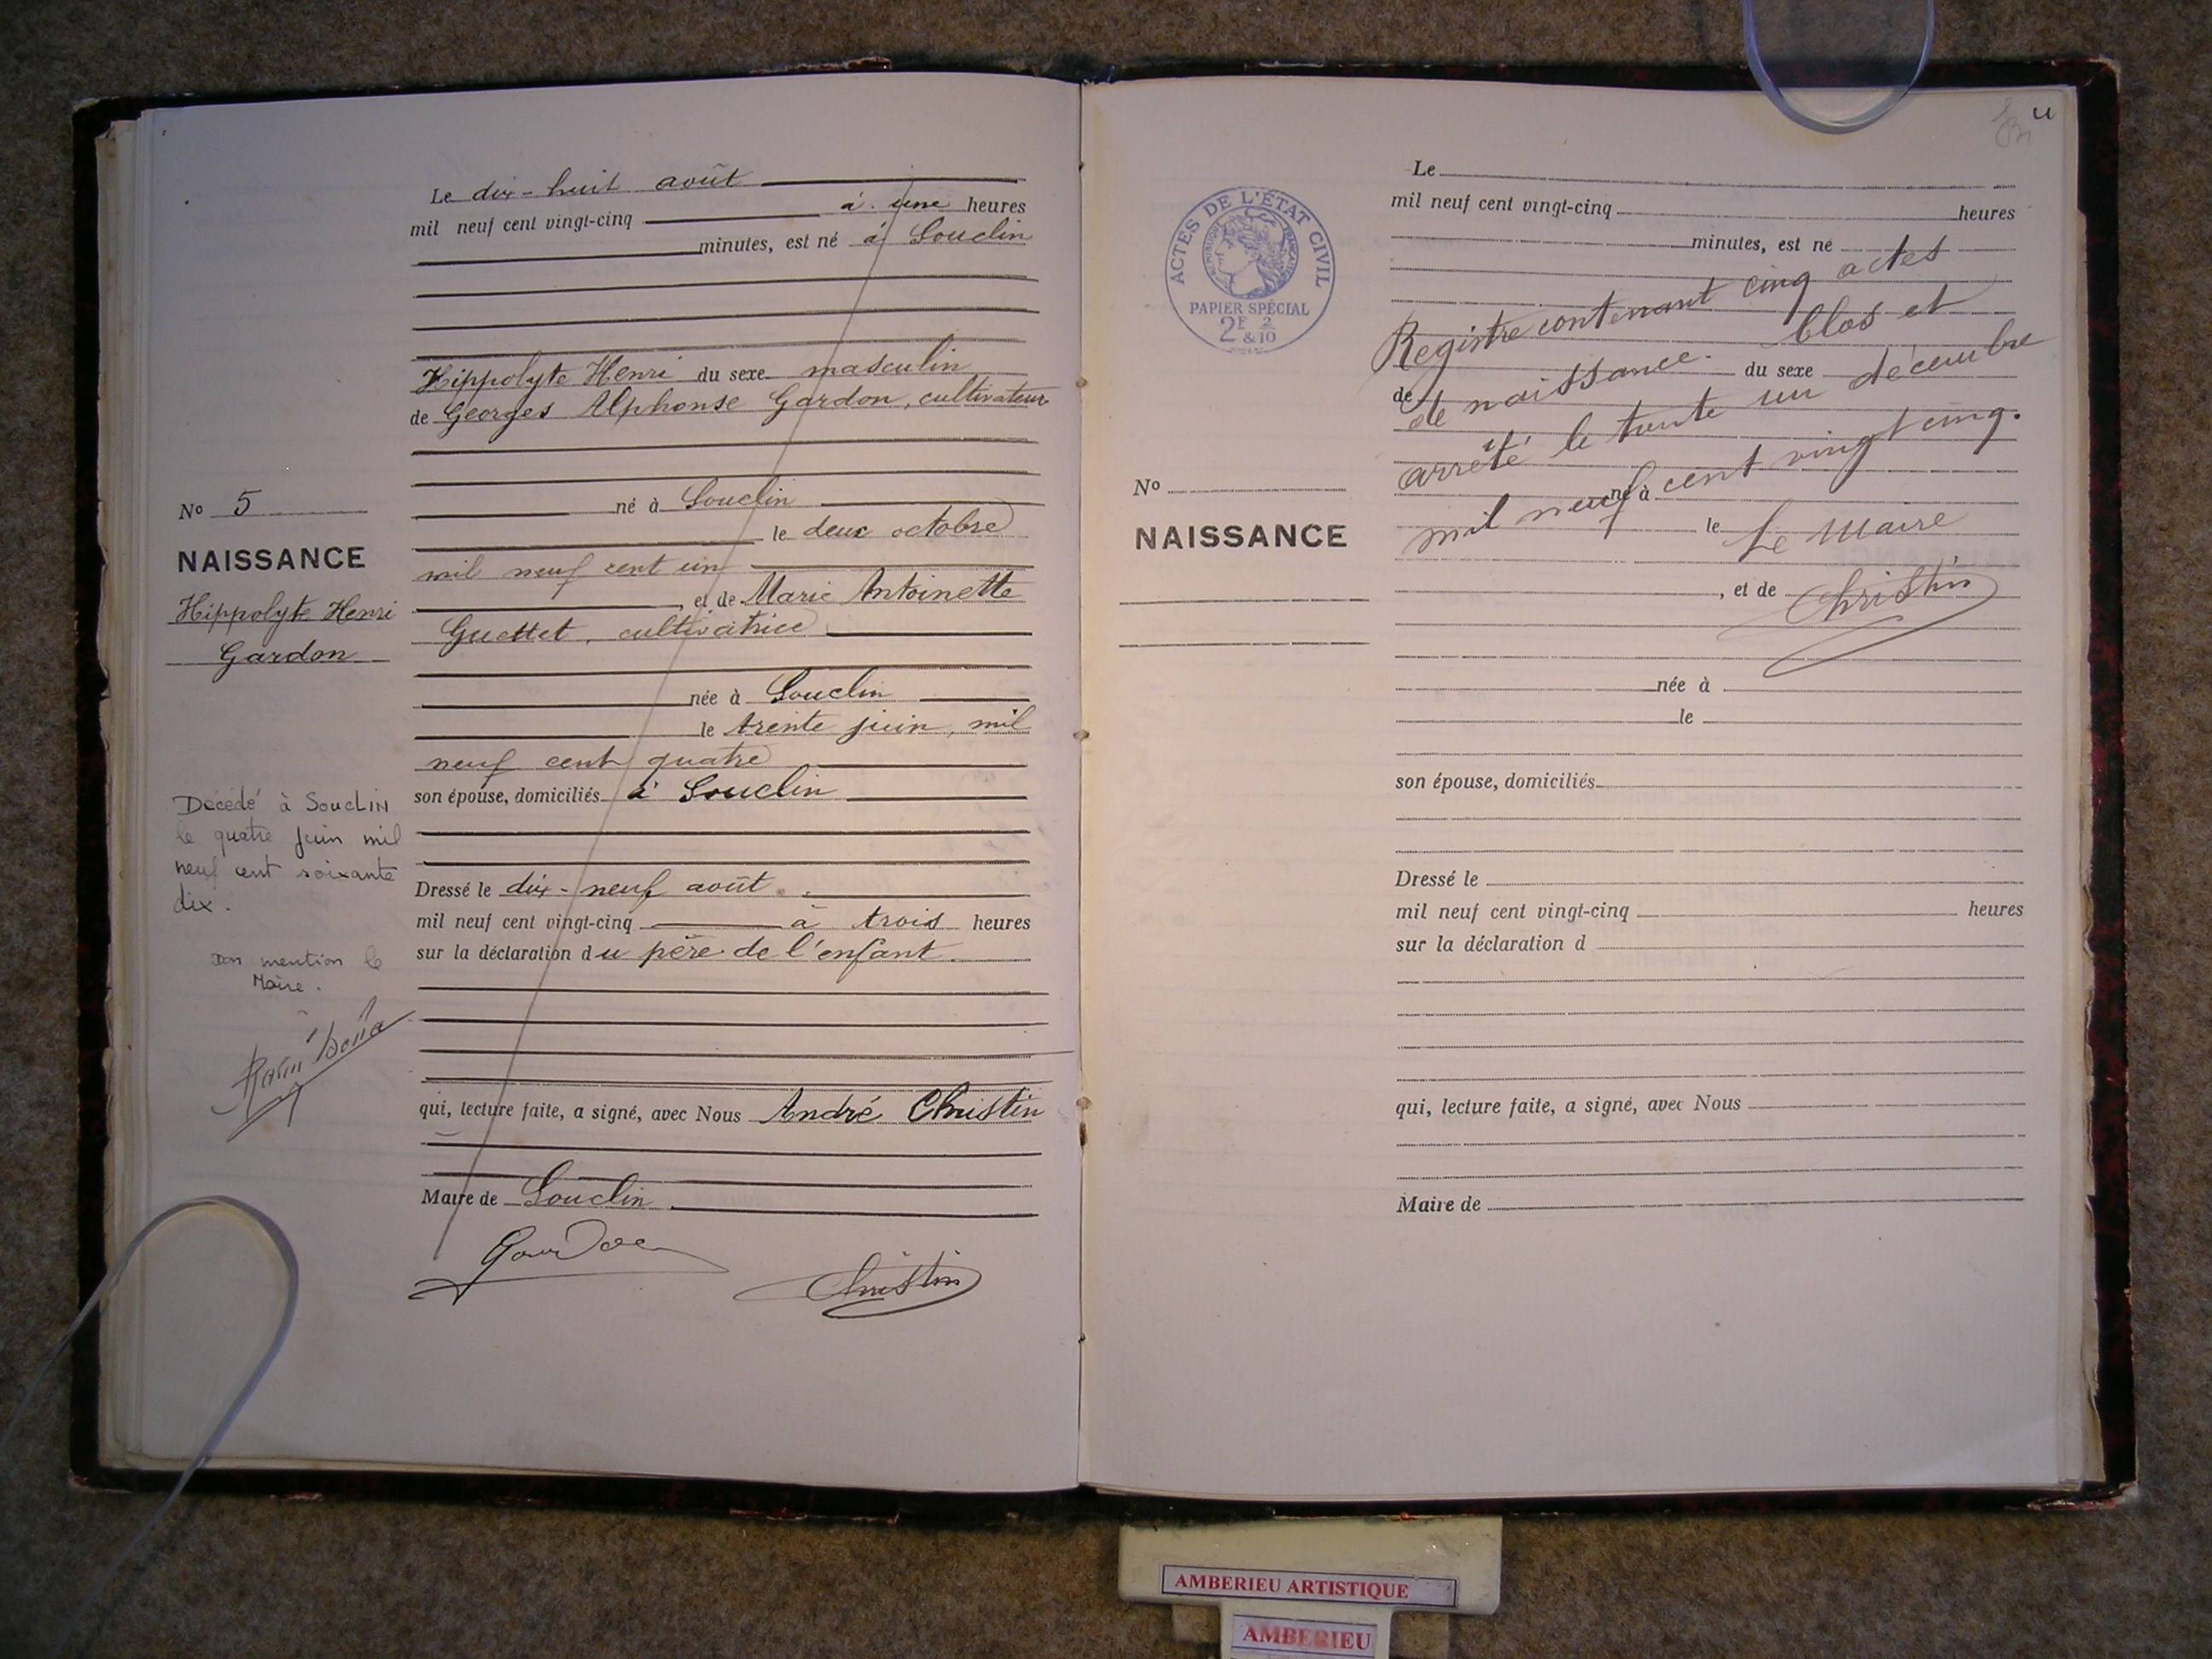 Le dix-huit août
mil neuf cent vingt-cinq à une heures
minutes, est né à Souclin
Hippolyte Henri du sexe masculin
de Georges Alphonse Gardon, cultivateur
né à Souclin
le deux octobre
mil neuf cent un
, et de Marie Antoinette
Guettet, cultivatrice
née à Souclin
le trente juin, mil
neuf cent quatre
son épouse, domiciliés à Souclin
Dressé le dix-neuf août
mil neuf cent vingt-cinq à trois heures
sur la déclaration du père de l'enfant
qui, lecture faite, a signé, avec Nous André Christin
Maire de Souclin
Christin
No 5
NAISSANCE
Hippolyte Henri
Gardon
Décédé à SoucLIN
le quatre juin mil
neuf cent soixante
dix.
mention le
Maire.
ACTES DE L'ÉTAT CIVIL
RÉPUBLIQUE FRANÇAISE
PAPIER SPÉCIAL
2F 2
&10
No
NAISSANCE
Le
mil neuf cent vingt-cinq heures
minutes, est né
Registre contenant cinq actes
de naissance. Clos et
du sexe
de
arrêté le trente un décembre
mil neuf cent vingt cinq.
né à
le
Le Maire
, et de
Christin
née à
le
son épouse, domiciliés
Dressé le
mil neuf cent vingt-cinq heures
sur la déclaration d
qui, lecture faite, a signé, avec Nous
Maire de
AMBERIEU ARTISTIQUE
AMBERIEU